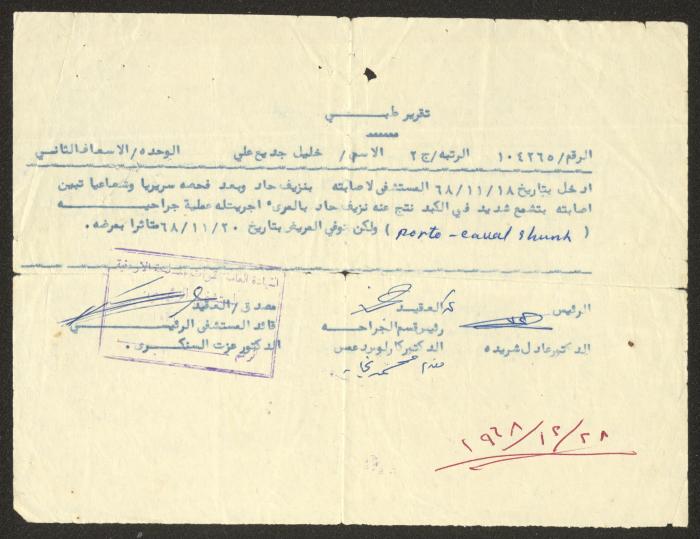 تقرير طبــــي
الرقم/ ١٠٤٢٦٥ الرتبه/ج ٢ الاسم/ خليل جديع علي الوحده/الاسعاف الثاني
ادخل بتاريخ ٦٨/١١/١٨ المستشفى لاصابته بنزيف حاد وبعد فحصه سريريا وشعاعيا تبين
اصابته بتشمع شديد في الكبد نتج عنه نزيف حاد بالمرىء اجريت له عملية جراحيــه
( porto - caval shunt ) ولكن توفي المريض بتاريخ ٦٨/١١/٢٠ متاثرا بمرضه.
القيادة العامة للقوات المسلحة الاردنية
الرئيس العقيد مصدق / العقيد
رئيس قسم الجراحه قائد المستشفى الرئيســـي
الدكتور عادل شريده الدكتور كارلوس دعمس الدكتور عزت السنكــرى.
١٩٦٨/١٢/٢٨